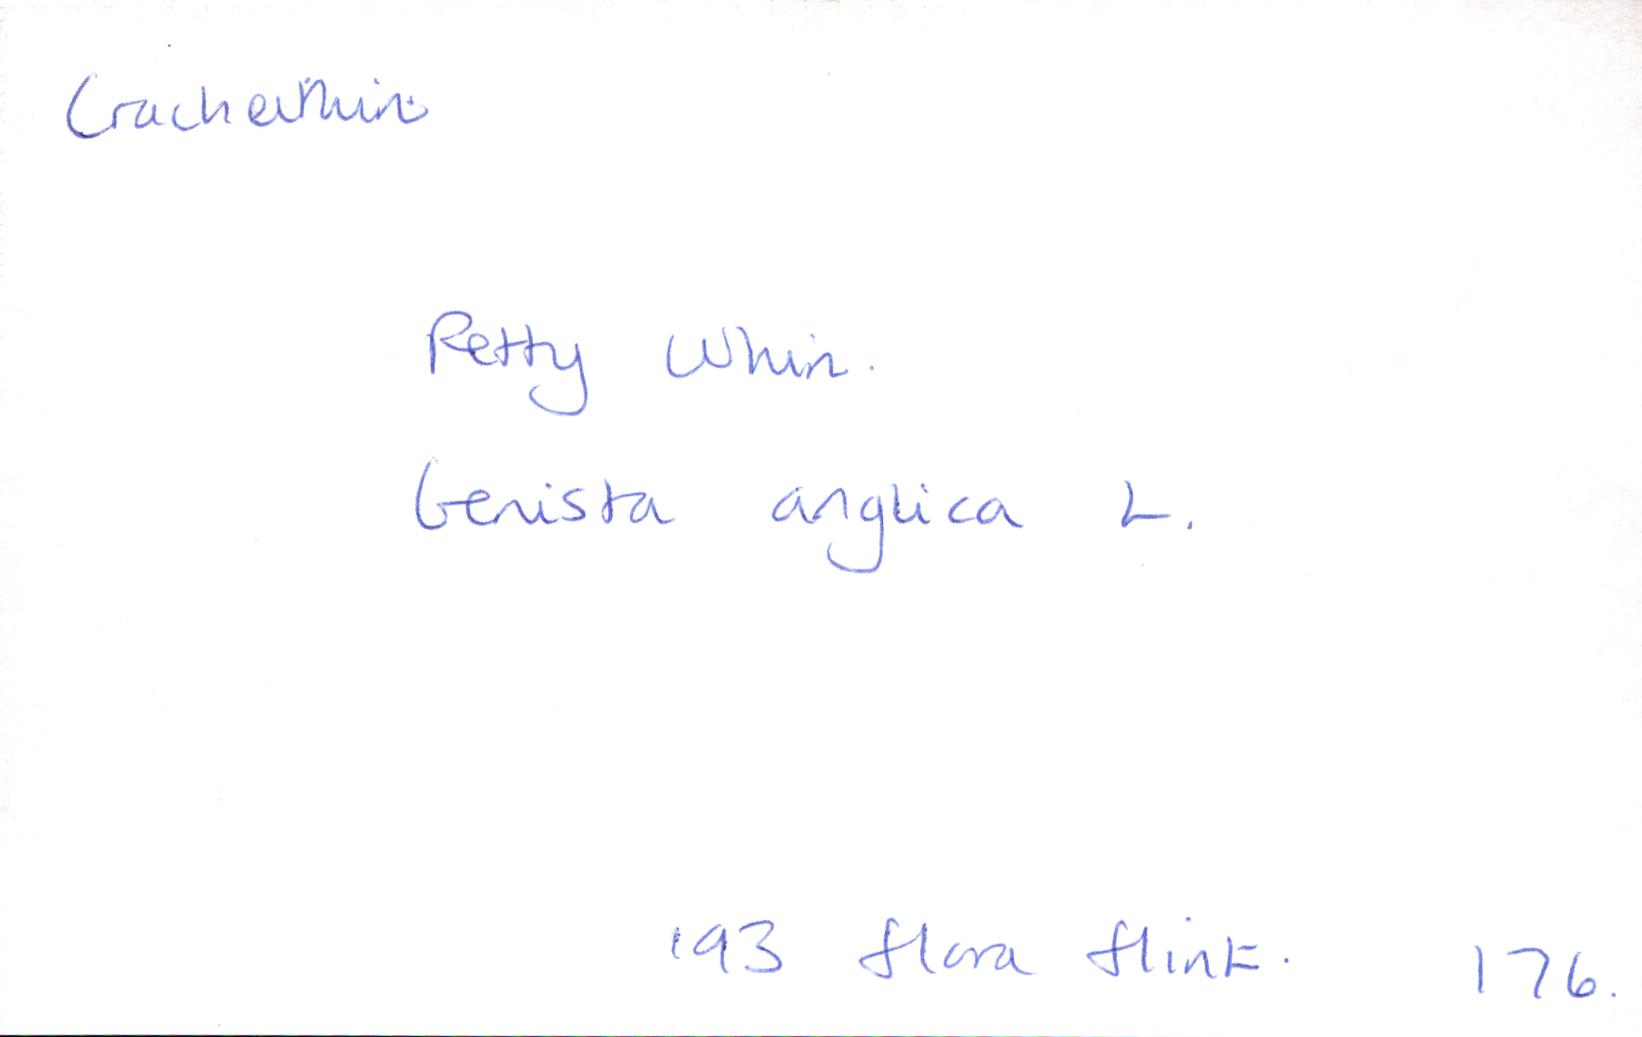 Cracheithin
Petty Whin.
Genista anglica L.
193 flora flint. 176.